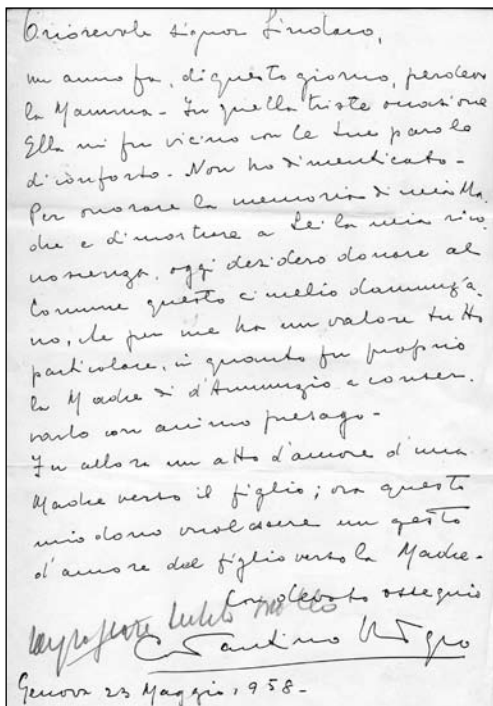 Onorevole Signor Sindaco,
un anno fa, di questo giorno, perdevo
la Mamma - In quella triste occasione
Ella mi fu vicino con le Sue parole
di conforto. Non ho dimenticato -
Per onorare la memoria di mia Ma
dre e dimostrare a Lei la mia rico
noscenza, oggi desidero donare al
Comune questo cimelio dannunzia
no, che per me ha un valore tutto
particolare, in quanto fu proprio
la Madre di d'Annunzio a conser.
varlo con animo presago -
Fu allora un atto d'amore d'una
Madre verso il figlio; ora questo
mio dono vuol essere un gesto
d'amore del figlio verso la Madre -
Con devoto ossequio
Costantino
Genova 23 Maggio, 1958 -